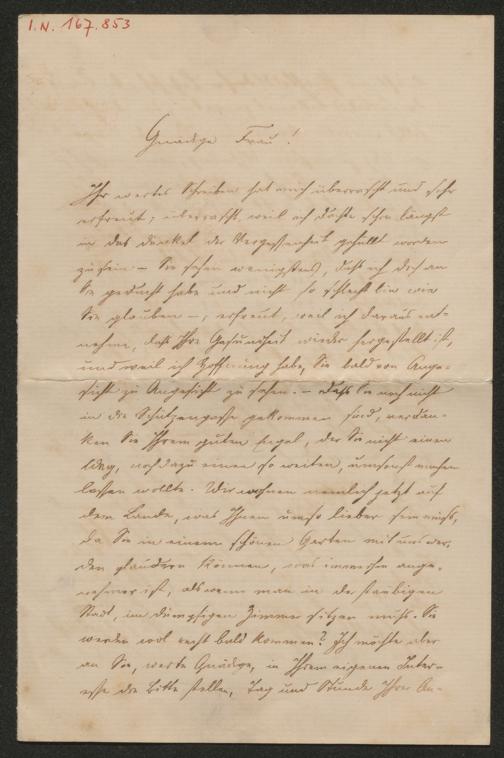 I.N. 167.853
Gnädige Frau!
Ihr wertes Schreiben hat mich überrascht und sehr
erfreut; überrascht, weil ich dachte schon längst
in das Dunkel der Vergessenheit gehüllt worden
zu sein – Sie sehen wenigstens, daß ich doch an
Sie gedacht habe und nicht so schlecht bin wie
Sie glauben –, erfreut, weil ich daraus ent-
nehme, daß Ihre Gesundheit wieder hergestellt ist,
und weil ich Hoffnung habe, Sie bald von Ange-
sicht zu Angesicht zu sehen. – Daß Sie noch nicht
in die Schützengasse gekommen sind, verdan-
ken Sie Ihrem guten Engel, der Sie nicht einen
Weg, noch dazu einen so weiten, umsonst machen
lassen wollte. Wir wohnen nemlich jetzt auf
dem Lande, was Ihnen umso lieber sein muß,
da Sie in einem schönen Garten mit uns
plaudern können, was immerhin ange-
nehmer ist, als wenn man in der staubigen
Stadt, im dumpfigen Zimmer sitzen muß. Sie
werden wol recht bald kommen? Ich möchte aber
an Sie, werte Gnädige, in Ihrem eigenen Inter-
esse die Bitte stellen, Tag und Stunde Ihrer An-